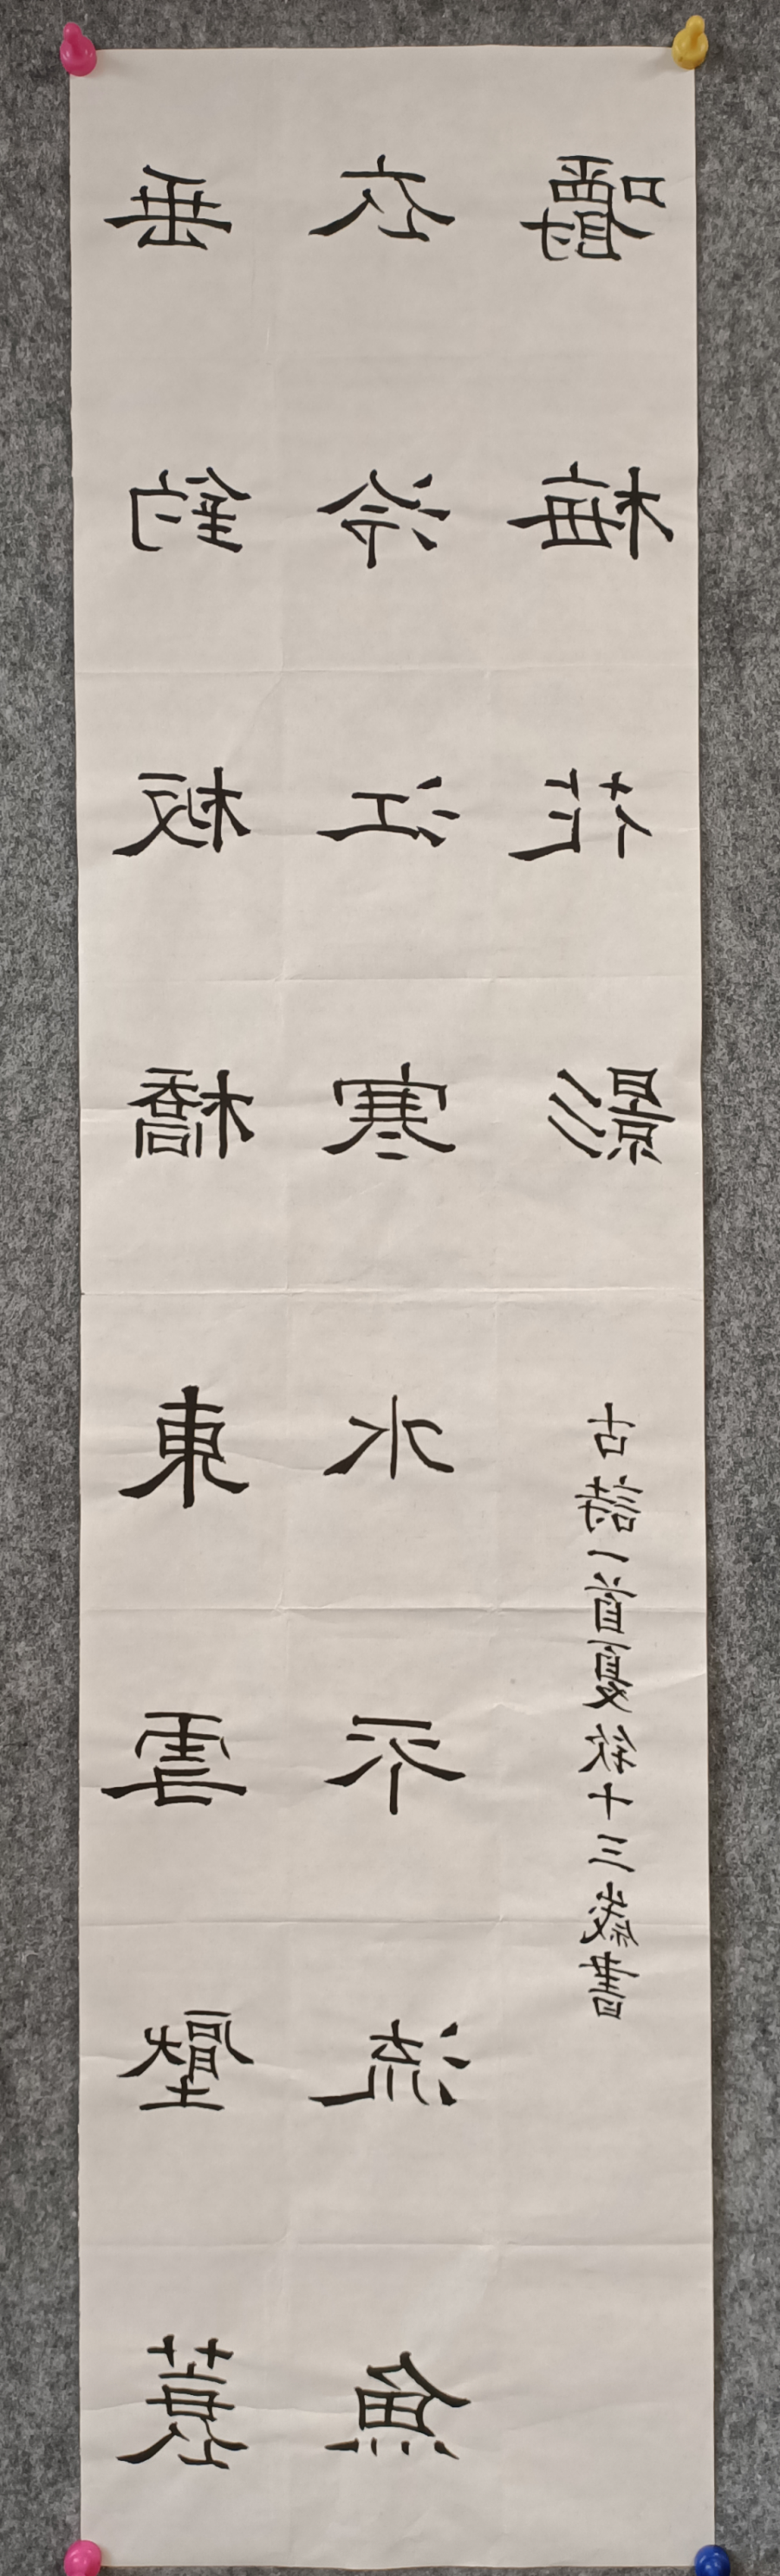 垂釣板橋東雪壓蓑
衣冷江寒水不流魚
嚼梅花影
古詩一首夏十三歲書